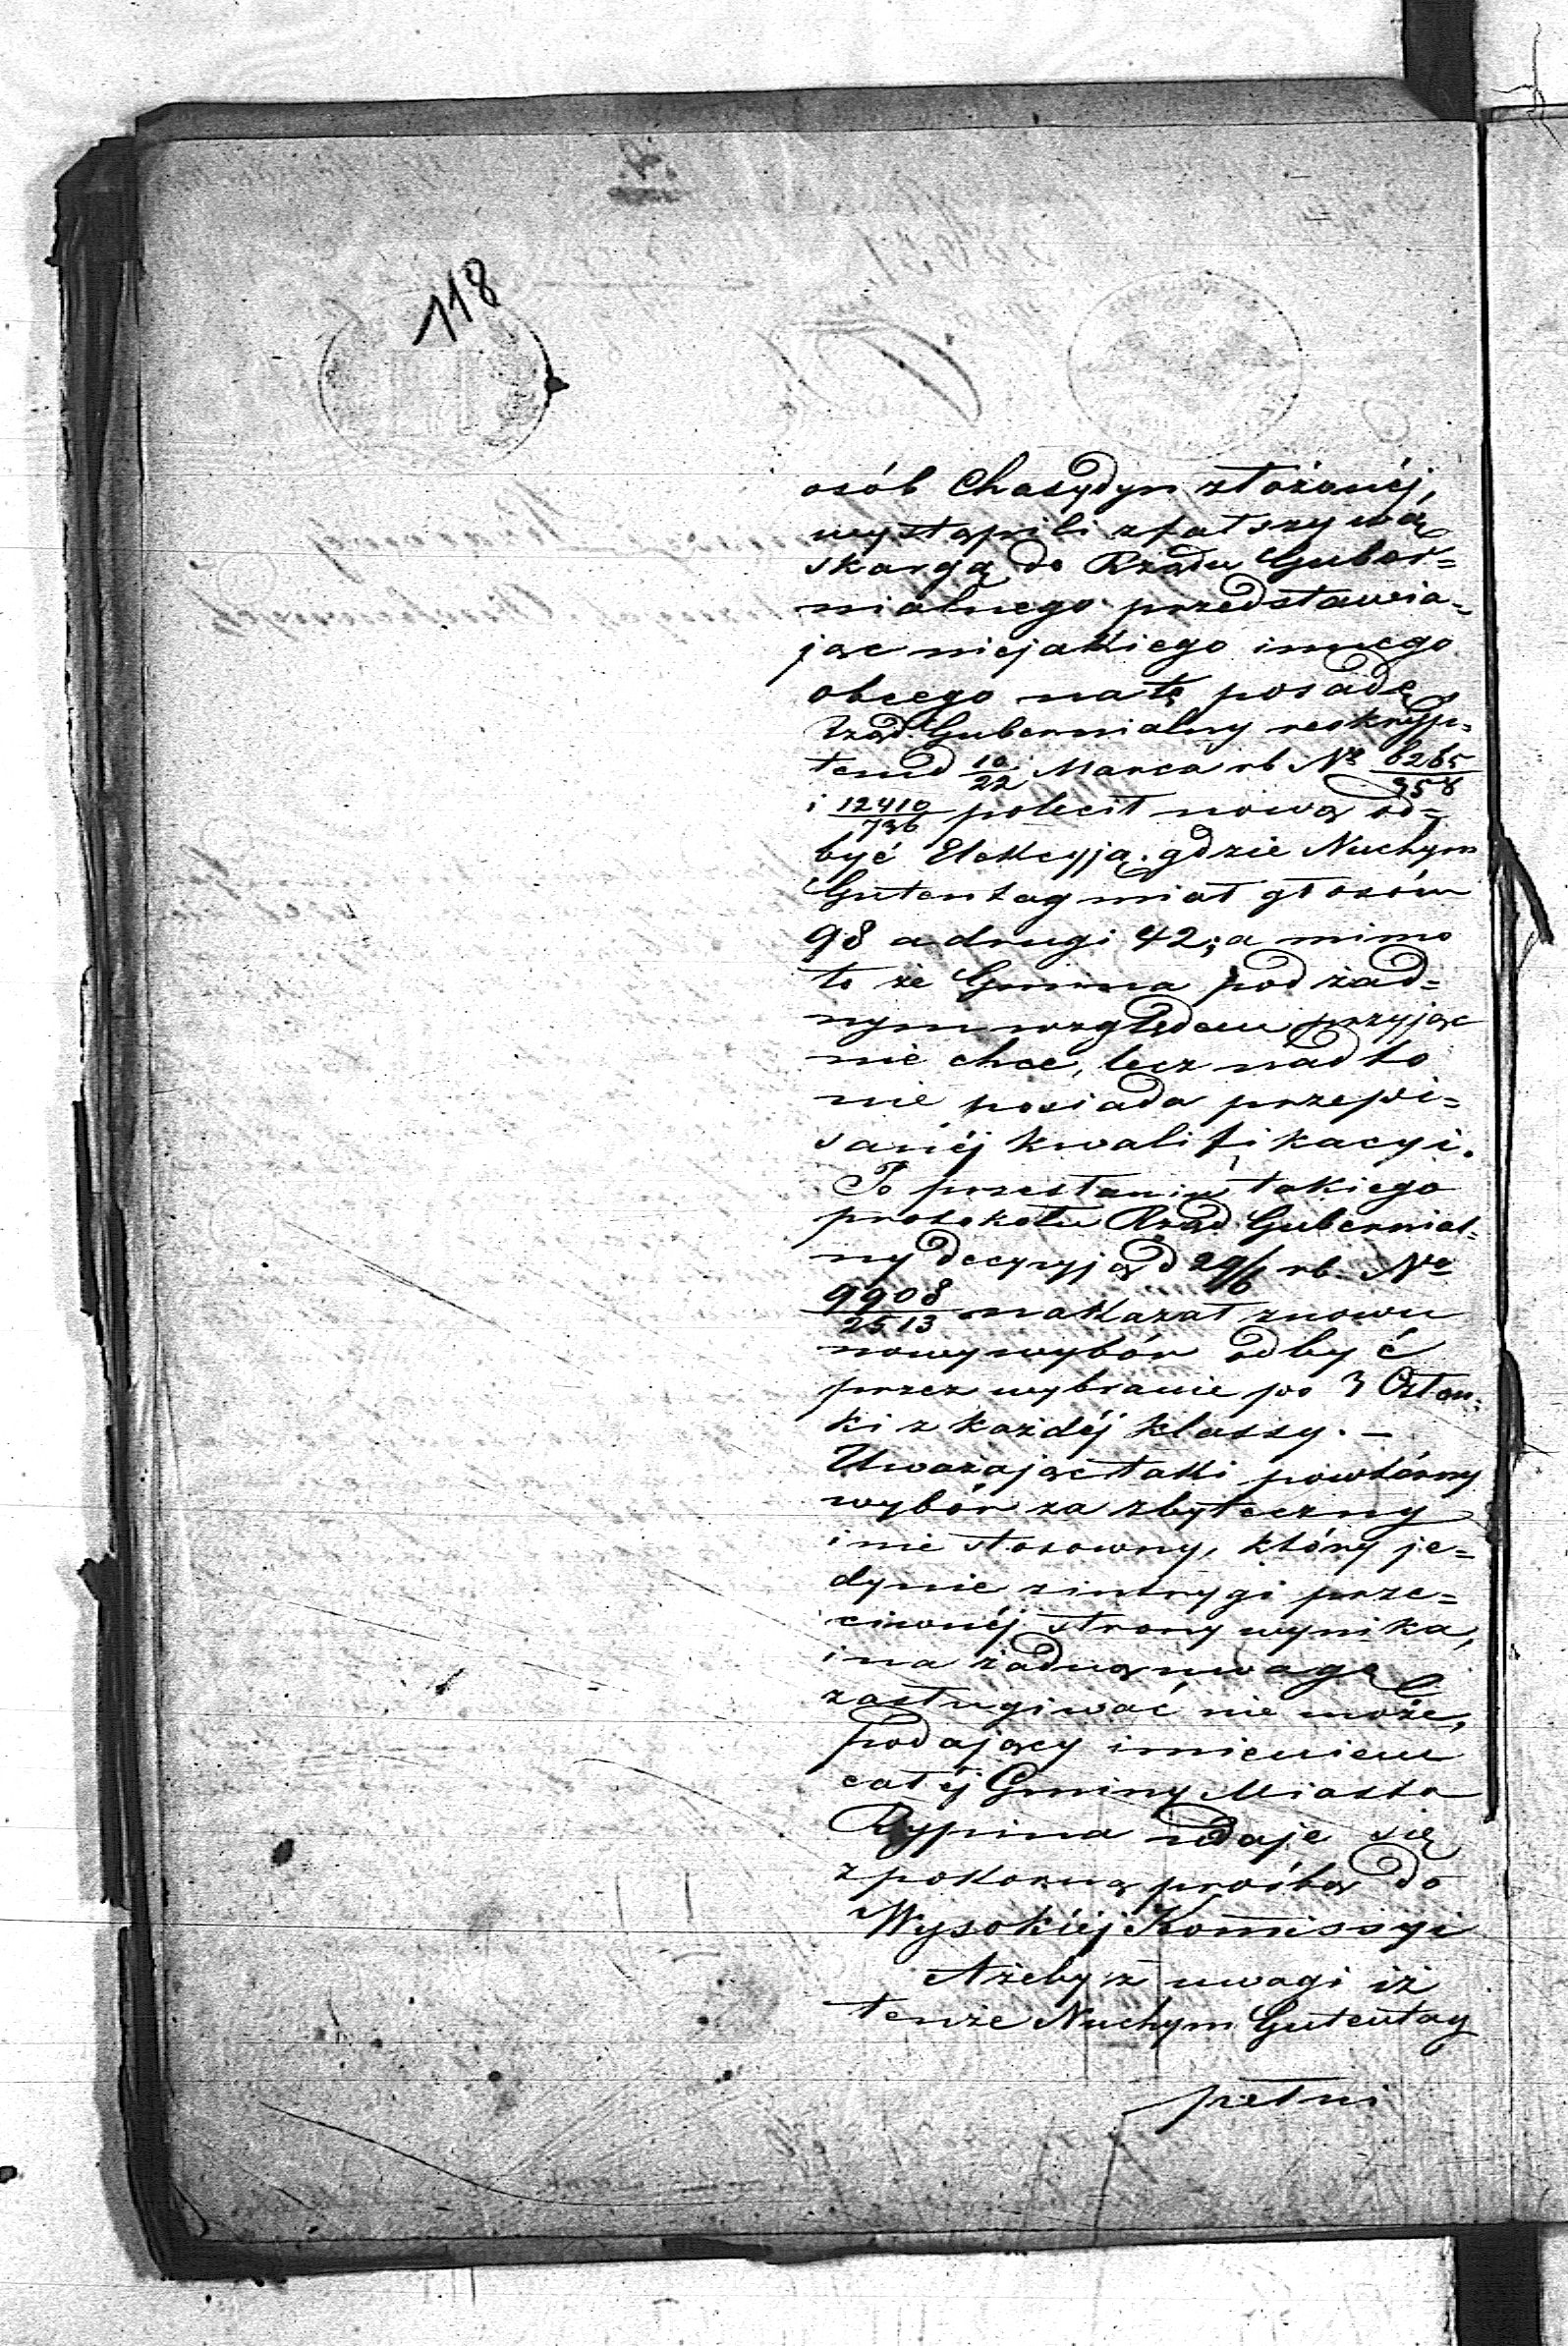 118
osób Chasydym złożonéj,
wystąpili z fałszywą
skargą do Rządu Guber=
nialnego przedstawia=
jąc niejakiego innego
obcego na tę posadę
Rząd Gubernialny reskryp=
tem d 10/22 Marca rb Nº 6265/958
i 12410/736 polecił nową od=
być Elekcyją. gdzie Nuchym
Gutentag miał głosów
98 a drugi 42; a mimo
to że Gmina pod żad=
nym względem przyjąc
nie chce, lecz nadto
nie posiada przepi=
sanéj kwalifikacyi.
Po przesłaniu takiego
protokołu Rząd Gubernial=
ny decyzyją d 29/6 rb. Nº
9908/2513 nakazał znowu
nowy wybór odbyć
przez wybranie po 3 Człon=
ki z każdéj klassy. –
Uważając taki powtórny
wybór za zbyteczny
i nie stosowny, który je=
dynie z intrygi prze=
ciwnéj strony wynika,
i na żadną uwagę
zasługiwać nie może,
podający imieniem
całéj Gminy Miasta
Rypina udaje się
z pokorną prośbą do
Wysokiéj Kommissyi
Ażeby z uwagi iż
tenże Nuchym Gutentag
pełni